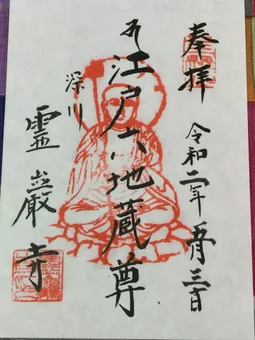 奉拝
令和二年一月三日
江戸六地蔵尊
深川
霊巌寺